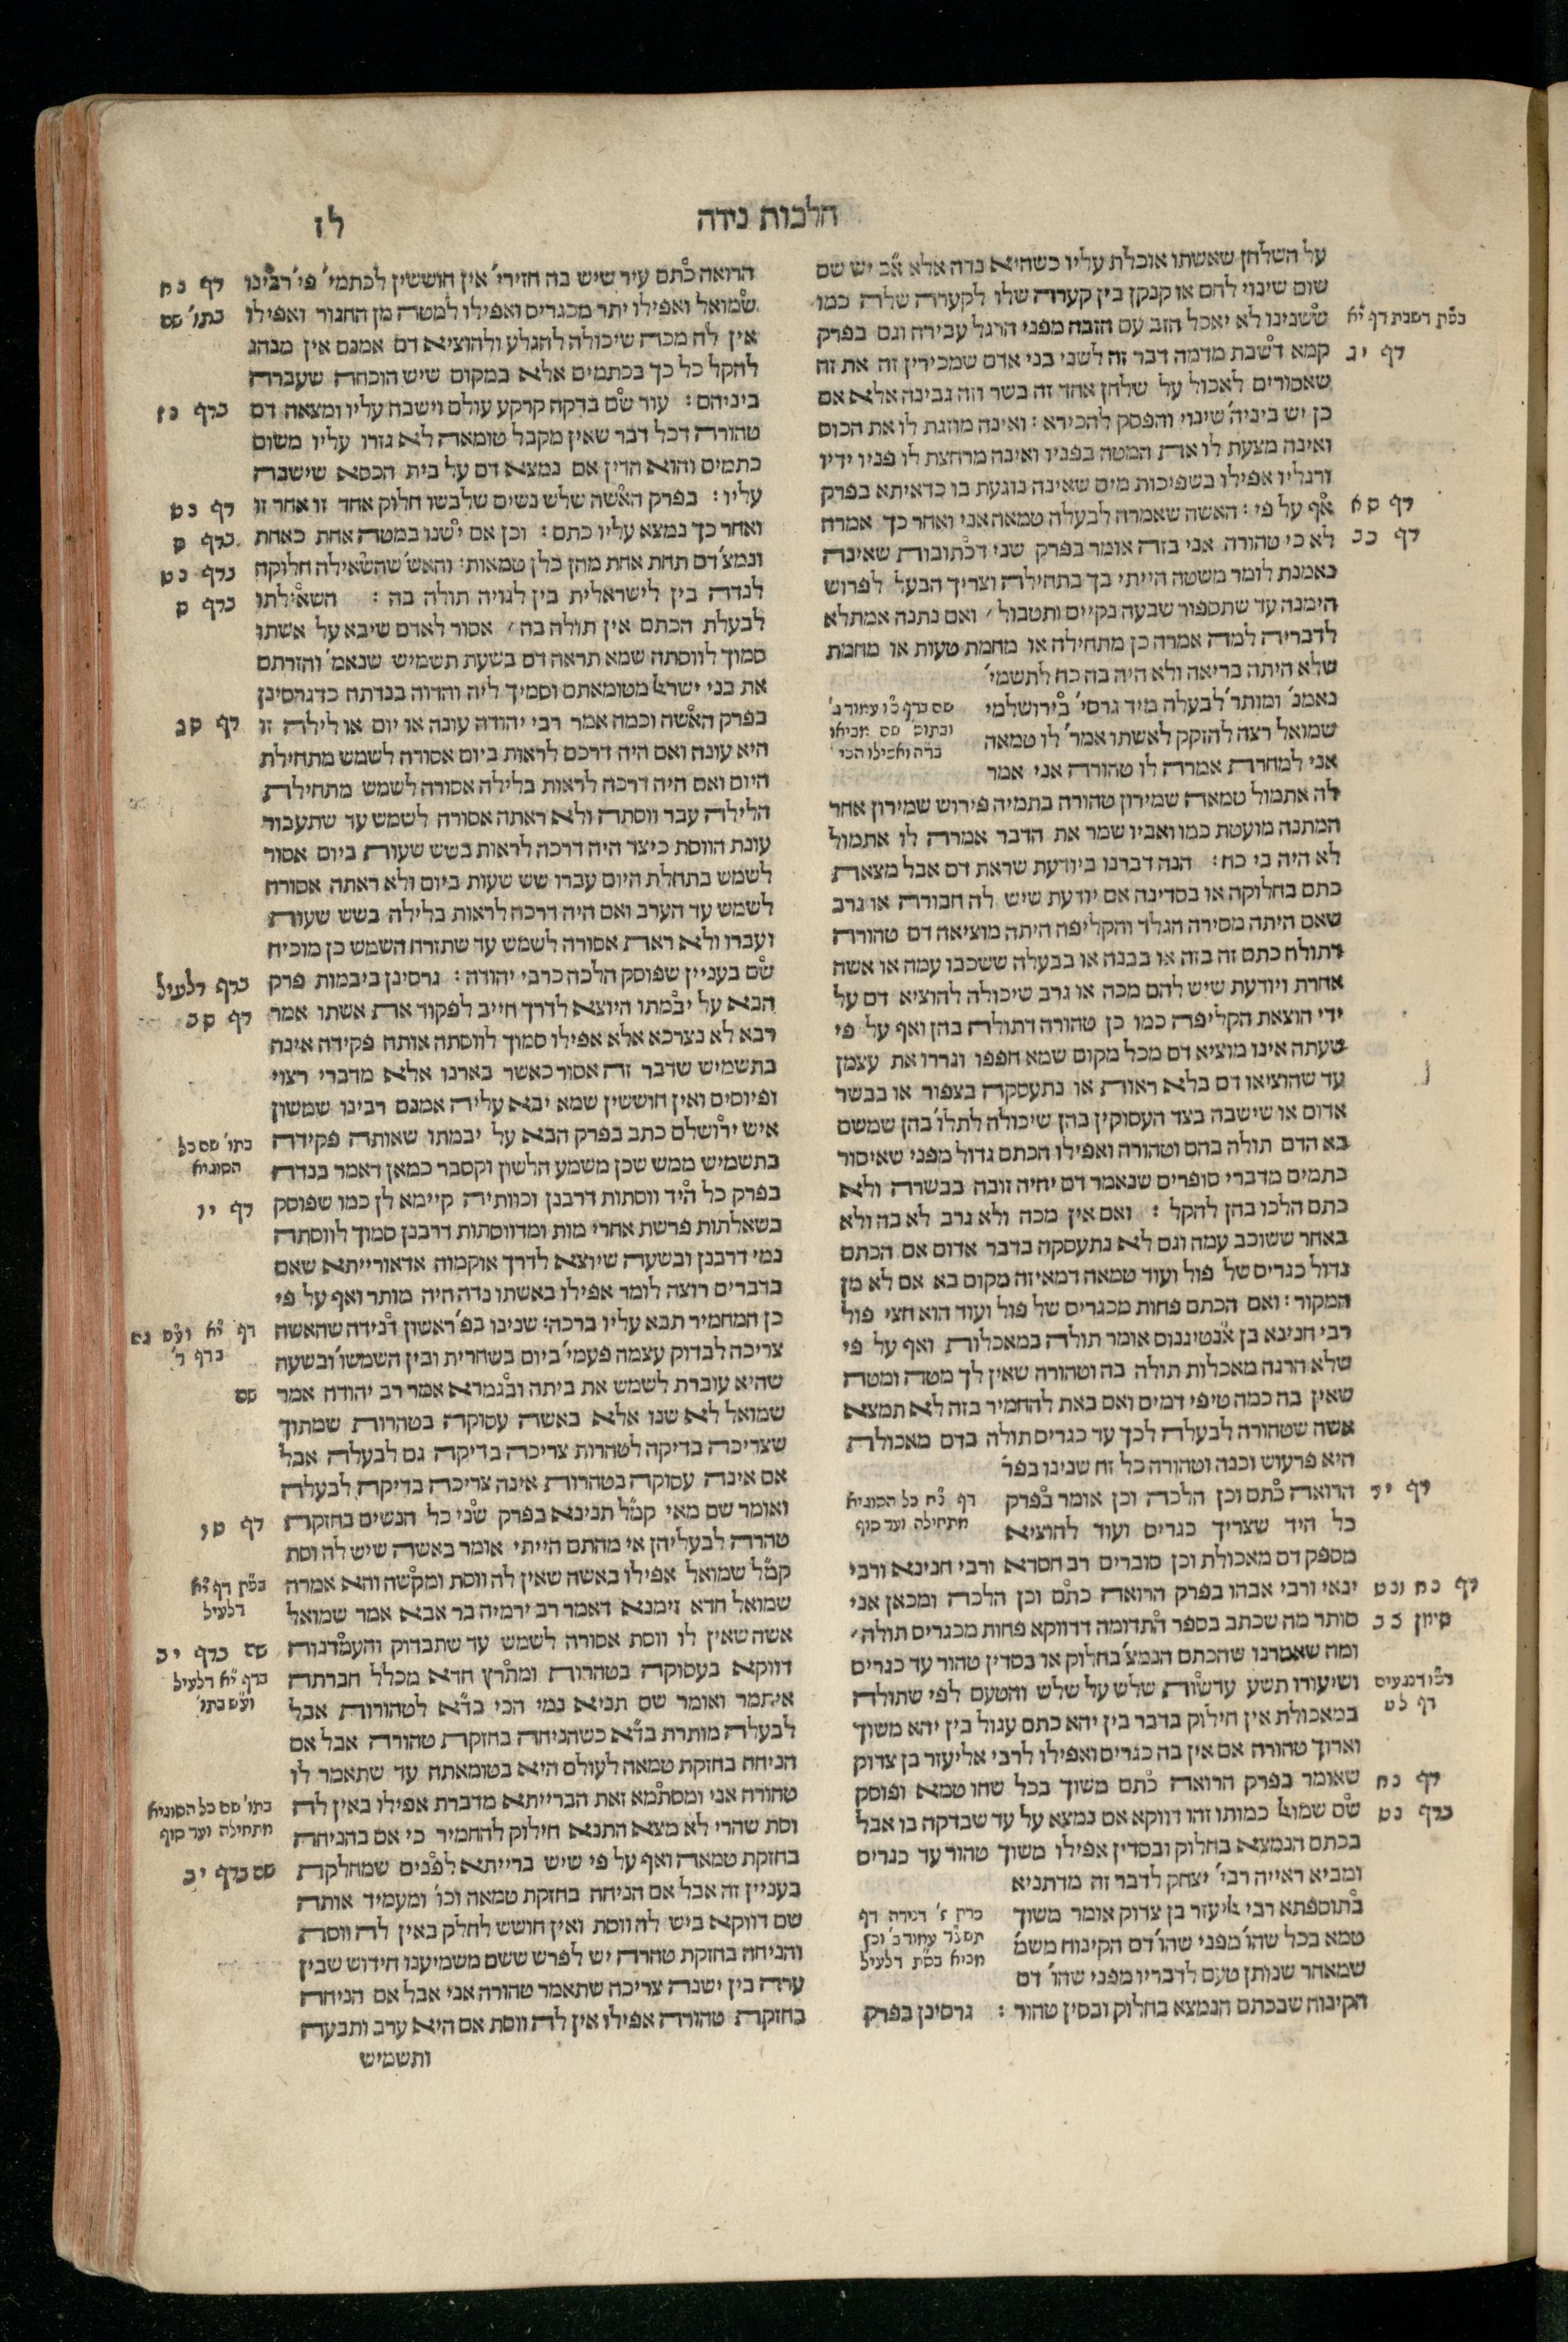 הלכות נידה
לז
על השלחן שאשתו אוכלת עליו כשהיא נדה אלא א̊כ יש שם
שום שינוי לחם או קנקן בין קערה שלו לקערה שלה כמו
ש̊שנינו לא יאכל הזב עם הזבה מפני הרגל עבירה וגם בפרק
קמא ד̊שבת מדמה דבר זה לשני בני אדם שמכירין זה את זה
שאסורים לאכול על שלחן אחד זה בשר וזה גבינה אלא אם
כן יש ביניה׳ שינוי והפסק להכירא : ואינה מוזגת לו את הכוס
ואינה מצעת לו את המטה בפניו ואינה מרחצת לו פניו ידיו
ורגליו אפילו בשפיכות מים שאינה נוגעת בו כדאיתא בפרק
א̊ף על פי : האשה שאמרה לבעלה טמאה אני ואחר כך אמרה
לא כי טהורה אני בזה אומר בפרק שני ד̊כתובות שאינה
נאמנת לומר משטה הייתי בך בתחילה וצריך הבעל לפרוש
הימנה עד שתספור שבעה נקיים ותטבול ׳ ואם נתנה אמתלא
לדבריה למה אמרה כן מתחילה או מחמת טעות או מחמת
שלא היתה בריאה ולא היה בה כח לתשמי׳
נאמנ׳ ומותר׳ לבעלה מיד גרסי׳ ב̊ירושלמי
שמואל רצה להזקק לאשתו אמר׳ לו טמאה
אני למחרת אמרה לו טהורה אני אמר
לה אתמול טמאה שמירון טהורה בתמיה פירוש שמירון אחר
המתנה מועטת כמו ואביו שמר את הדבר אמרה לו אתמול
לא היה בי כח : הנה דברנו ביודעת שראת דם אבל מצאת
כתם בחלוקה או בסדינה אם יודעת שיש לה חבורה או גרב
שאם היתה מסירה הגלד והקליפה היתה מוציאה דם טהורה
דתולה כתם זה בזה או בבנה או בבעלה ששכבו עמה או אשה
אחרת ויודעת שיש להם מכה או גרב שיכולה להוציא דם על
ידי הוצאת הקליפה כמו כן טהורה דתולה בהן ואף על פי
שעתה אינו מוציא דם מכל מקום שמא חפפו וגררו את עצמן
עד שהוציאו דם בלא ראות או נתעסקה בצפור או בבשר
אדום או שישבה בצד העסוקין בהן שיכולה לתלו׳ בהן שמשם
בא הדם תולה בהם וטהורה ואפילו הכתם גדול מפני שאיסור
כתמים מדברי סופרים שנאמר דם יהיה זובה בבשרה ולא
כתם הלכו בהן להקל : ואם אין מכה ולא גרב לא בה ולא
באחר ששוכב עמה וגם לא נתעסקה בדבר אדום אם הכתם
גדול כגריס של פול ועוד טמאה דמאיזה מקום בא אם לא מן
המקור : ואם הכתם פחות מכגריס של פול ועוד הוא חצי פול
רבי חנינא בן א̊נטיגנוס אומר תולה במאכולת ואף על פי
שלא הרגה מאכלות תולה בה וטהורה שאין לך מטה ומטה
שאין בה כמה טיפי דמים ואם באת להחמיר בזה לא תמצא
אשה שטהורה לבעלה לכך עד כגריס תולה בדם מאכולת
היא פרעוש וכנה וטהורה כל זה שנינו בפר׳
הרואה כ̊תם וכן הלכה וכן אומר ב̊פרק
כל היד שצריך כגריס ועוד להוציא
מספק דם מאכולת וכן סוברים רב חסדא ורבי חנינא ורבי
ינאי ורבי אבהו בפרק הרואה כת̊ם וכן הלכה ומכאן אני
סותר מה שכתב בספר ה̊תרומה דדווקא פחות מכגריס תולה ׳
ומה שאמרנו שהכתם הנמצ׳ בחלוק או בסדין טהור עד כגריס
ושיעורו תשע עדש̊ות שלש על שלש והטעם לפי שתולה
במאכולת אין חילוק בדבר בין יהא כתם עגול בין יהא משוך
וארוך טהורה אם אין בה כגריס ואפילו לרבי אליעזר בן צדוק
שאומר בפרק הרואה כ̊תם משוך בכל שהו טמא ופוסק
ש̊ם שמואל כמותו זהו דווקא אם נמצא על עד שבדקה בו אבל
בכתם הנמצא בחלוק ובסדין אפילו משוך טהור עד כגריס
ומביא ראייה רבי׳ יצחק לדבר זה מדתניא
בת̊וספתא רבי אליעזר בן צדוק אומר משוך
טמא בכל שהו׳ מפני שהו׳ דם הקינוח משמ׳
שמאחר שנותן טעם לדבריו מפני שהו׳ דם
הקינוח שבכתם הנמצא בחלוק ובסין טהור : גרסינן בפרק
בס̊ת דשבת דף י̊א
דף יג
דף ס א
דף כב
שם בדף כ̊ו עמוד ב׳
ובתוס׳ שם מביאו
דף יד
דף נ̊ח כל הסוגיא
מתחילה ועד סוף
דף נח ונט
סימן צב
דף לט
דף נח
בדף נט
מביא בס̊ת דלעיל
הרואה כ̊תם עיר שיש בה חזירי׳ אין חוששין לכתמי׳ פי׳ רב̊ינו
ש̊מואל ואפילו יתר מכגריס ואפילו למטה מן החגור ואפילו
אין לה מכה שיכולה להגלע ולהוציא דם אמנם אין מנהג
להקל כל כך בכתמים אלא במקום שיש הוכחה שעברה
ביניהם : עוד ש̊ם בדקה קרקע עולם וישבה עליו ומצאה דם
טהורה דכל דבר שאין מקבל טומאה לא גזרו עליו משום
כתמים והוא הדין אם נמצא דם על בית הכסא שישבה
עליו : בפרק הא̊שה שלש נשים שלבשו חלוק אחד זו אחר זו
ואחר כך נמצא עליו כתם : וכן אם י̊שנו במטה אחת כאחת
ונמצ׳ דם תחת אחת מהן כלן טמאות : והאש׳ שהש̊אילה חלוקה
לנדה בין לישראלית בין לגויה תולה בה : השא̊ילתו
לבעלת הכתם אין תולה בה ׳ אסור לאדם שיבא על אשתו
סמוך לווסתה שמא תראה דם בשעת תשמיש שנאמ׳ והזרתם
את בני ישראל מטומאתם וסמיך ליה והדוה בנדתה כדגרסינן
בפרק הא̊שה וכמה אמר רבי יהודה עונה או יום או לילה זו
היא עונה ואם היה דרכם לראות ביום אסורה לשמש מתחילת
היום ואם היה דרכה לראות בלילה אסורה לשמש מתחילת
הלילה עבר ווסתה ולא ראתה אסורה לשמש עד שתעבור
עונת הווסת כיצד היה דרכה לראות בשש שעות ביום אסור
לשמש בתחלת היום עברו שש שעות ביום ולא ראתה אסורה
לשמש עד הערב ואם היה דרכה לראות בלילה בשש שעות
ועברו ולא ראת אסורה לשמש עד שתזרח השמש כן מוכיח
ש̊ם בעניין שפוסק הלכה כרבי יהודה : גרסינן ביבמות פרק
הבא על יב̊מתו היוצא לדרך חייב לפקוד את אשתו אמר
רבא לא נצרכא אלא אפילו סמוך לווסתה אותה פקידה אינה
בתשמיש שדבר זה אסור כאשר בארנו אלא מדברי רצוי
ופיוסים ואין חוששין שמא יבא עליה אמנם רבינו שמשון
איש יר̊ושלם כתב בפרק הבא על יבמתו שאותה פקידה
בתשמיש ממש שכן משמע הלשון וקסבר כמאן דאמר בנדה
בפרק כל ה̊יד ווסתות דרבנן וכוותיה קיימא לן כמו שפוסק
בשאלתות פרשת אחרי מות ומדווסתות דרבנן סמוך לווסתה
נמי דרבנן ובשעה שיוצא לדרך אוקמוה אדאורייתא שאם
בדברים רוצה לומר אפילו באשתו נדה היה מותר ואף על פי
כן המחמיר תבא עליו ברכה : שנינו בפ׳ ראשון ד̊נידה שהאשה
צריכה לבדוק עצמה פעמי׳ ביום בשחרית ובין השמשו׳ ובשעה
שהיא עוברת לשמש את ביתה וב̊גמרא אמר רב יהודה אמר
שמואל לא שנו אלא באשה עסוקה בטהרות שמתוך
שצריכה בדיקה לטהרות צריכה בדיקה גם לבעלה אבל
אם אינה עסוקה בטהרות אינה צריכה בדיקה לבעלה
ואומר שם מאי קמ̊ל תנינא בפרק ש̊ני כל הנשים בחזקת
טהרה לבעליהן אי מהתם הייתי אומר באשה שיש לה וסת
קמ̊ל שמואל אפילו באשה שאין לה ווסת ומק̊שה והא אמרה
שמואל חדא זימנא דאמר רב ירמיה בר אבא אמר שמואל
אשה שאין לו ווסת אסורה לשמש עד שתבדוק והעמ̊דנוה
דווקא בעסוקה בטהרות ומת̊רץ חדא מכלל חברתה
איתמר ואומר שם תניא נמי הכי בד̊א לטהרות אבל
לבעלה מותרת בד̊א כשהניחה בחזקת טהורה אבל אם
הניחה בחזקת טמאה לעולם היא בטומאתה עד שתאמר לו
טהורה אני ומסת̊מא זאת הברייתא מדברת אפילו באין לה
וסת שהרי לא מצא התנא חילוק להחמיר כי אם בהניחה
בחזקת טמאה ואף על פי שיש ברייתא לפ̊נים שמחלקת
בעניין זה אבל אם הניחה בחזקת טמאה וכו׳ ומעמיד אותה
שם דווקא ביש לה ווסת ואין חושש לחלק באין לה ווסת
והניחה בחזקת טהרה יש לפרש ששם משמיענו חידוש שבין
ערה בין ישנה צריכה שתאמר טהורה אני אבל אם הניחה
בחזקת טהורה אפילו אין לה ווסת אם היא ערב ותבעה
ותשמיש
דף נח
בתו׳ שם
בדף נז
דף נט
בדף ס
בדף נט
בדף ס
דף סג
בדף דלעיל
דף סב
בתו׳ שם כל
הסוגיא
דף יו
דף י̊א
שם
דף טו
בס̊ת דף י̊א
דלעיל
שם בדף יב
בדף י̊א דלעיל
בתו׳ שם כל הסוגיא
מתחילה ועד סוף
שם בדף יב